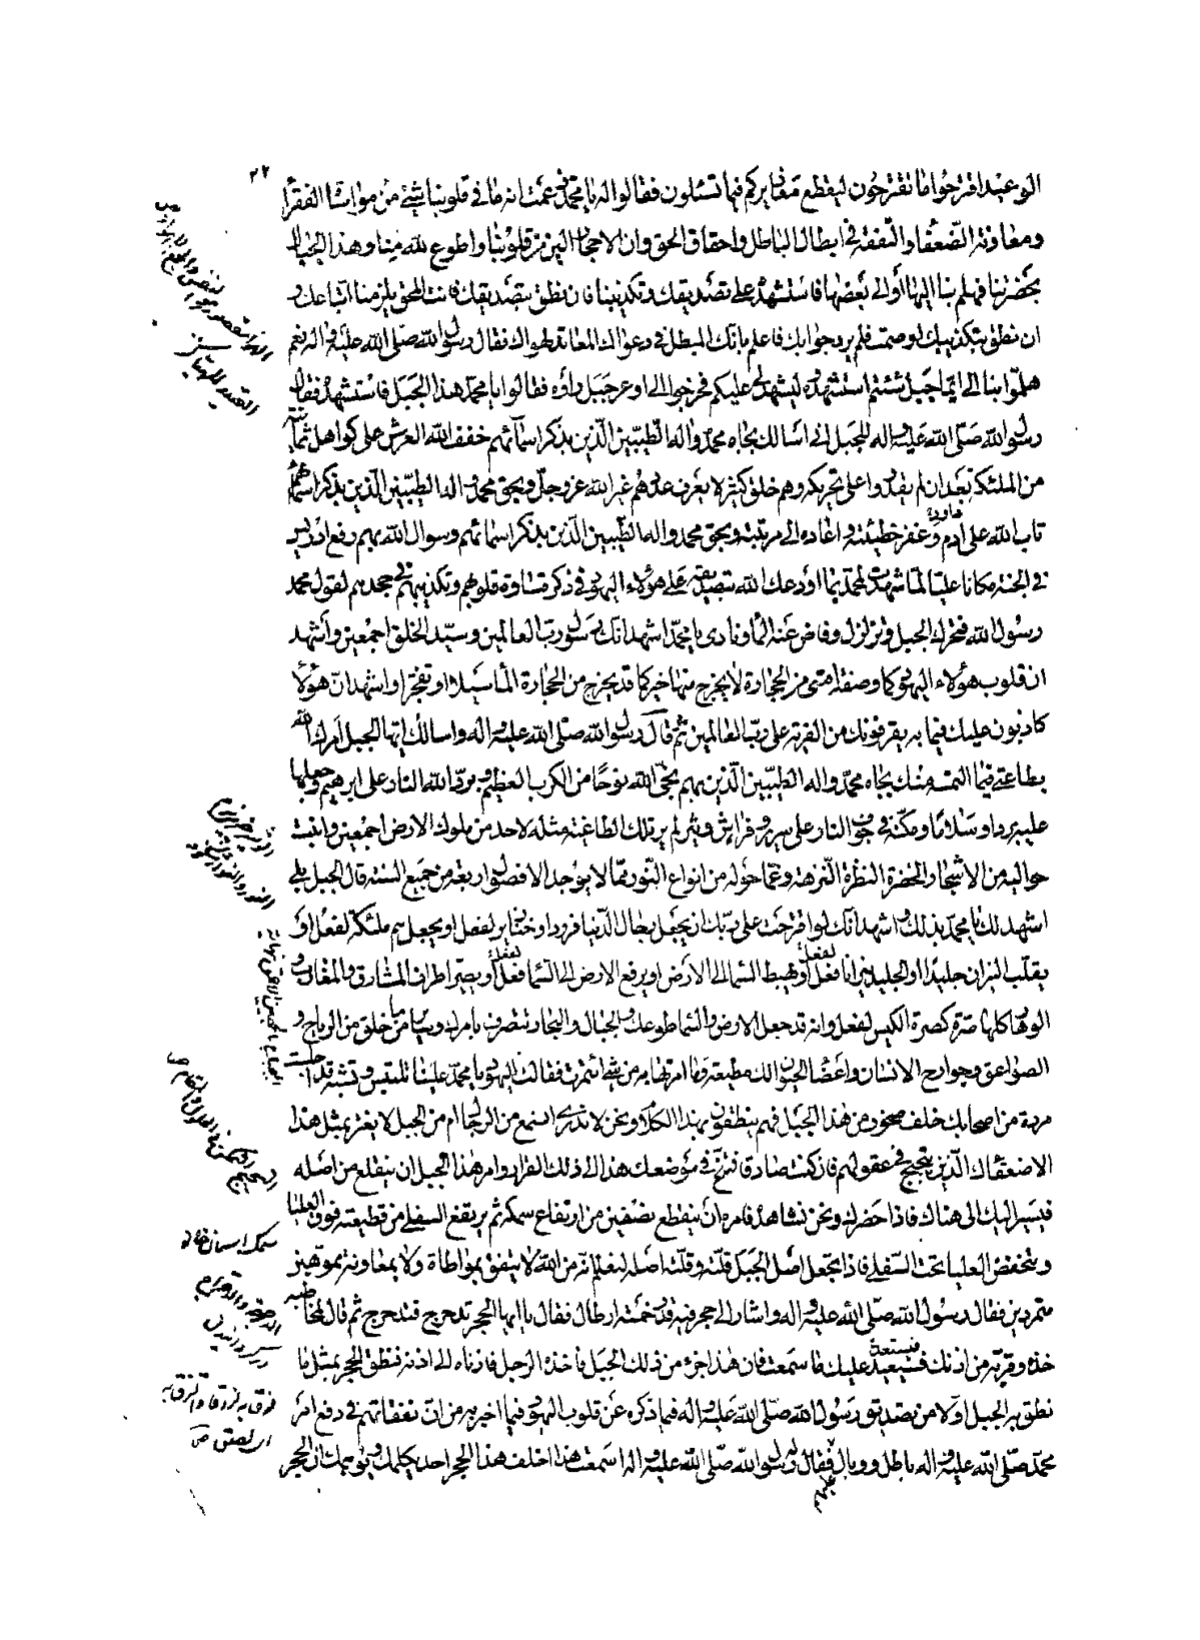 ٢٢
الوعيد اقترحوا ما تقترحون ليقطع معاذيركم فيما تسئلون فقالوا له يا محمد زعمت انه ما في قلوبنا شئ من مواساة الفقرا
ومعاونة الضعفاء والنفقة في ابطال الباطل واحقاق الحق وان الاحجار الين من قلوبنا واطوع لله منا وهذه الجبال
بحضرتنا فهلم بنا اليها او الى بعضها فاستشهده على تصديقك وتكذيبنا فان نطق بتصديقك فانت المحق يلزمنا اتباعك و
ان نطق بتكذيبك او صمت فلم يرد جوابك فاعلم بانك المبطل في دعواك المعاند لهواك فقال رسول الله صلى الله عليه واله نعم
هلموا بنا الى ايما جبل شئتم استشهده ليشهد لي عليكم فخرجوا الى اوعر جبل راوه فقالوا يا محمد هذا الجبل فاستشهده فقال
رسول الله صلى الله عليه واله للجبل اني اسالك بجاه محمد واله الطيبين الذين بذكر اسمائهم خفف الله العرش على كواهل ثمانية
من الملئكة بعد ان لم يقدروا على تحريكه وهم خلق كثير لا يعرف عددهم غير الله عز وجل وبحق محمد واله الطيبين الذين بذكر اسمائهم
تاب الله على ادم وغفر خطيئته واعاده الى مرتبته وبحق محمد واله الطيبين الذين بذكر اسمائهم وسوال الله بهم رفع ادريس
في الجنة مكانا عليا لما شهدت لمحمد بما اودعك الله بتصديقه على هؤلاء اليهود في ذكر قساوة قلوبهم وتكذيبهم في جحدهم لقول محمد
رسول الله فتحرك الجبل وتزلزل وفاض عنه الماء ونادى يا محمد اشهد انك رسول رب العالمين وسيد الخلق اجمعين واشهد
ان قلوب هؤلاء اليهود كما وصفت اقسى من الحجارة لا يخرج منها خير كما قد يخرج من الحجارة الماء سيلا او تفجرا واشهد ان هؤلاء
كاذبون عليك فيما به يقرفونك من الفرية على رب العالمين ثم قال رسول الله صلى الله عليه واله واسالك ايها الجبل امرك الله
بطاعتي فيما التمسه منك بجاه محمد واله الطيبين الذين بهم نجى الله نوحا من الكرب العظيم وبرد الله النار على ابرهيم وجعلها
عليه بردا وسلاما ومكنه في جوف النار على سرير وفراش وثير لم ير تلك الطاغية مثله لاحد من ملوك الارض اجمعين وانبت
حواليه من الاشجار الخضرة النظرة النزهة وعما حوله من انواع النور مما لا يوجد الا في فصول اربعة من جميع السنة قال الجبل بلى
اشهد لك يا محمد بذلك واشهد انك لو اقترحت على ربك ان يجعل رجال الدنيا قرودا وخنازير لفعل او يجعلهم ملئكة لفعل او
يقلب النيران جليدا او الجليد نيرانا لفعل او يهبط السماء الى الارض او يرفع الارض الى السماء لفعل او يصير اطراف المشارق والمغارب و
الوهاد كلها صرة كصرة الكيس لفعل وانه قد جعل الارض والسماء طوعك والجبال والبحار تتصرف بامرك وساير ما خلق من الرياح و
الصواعق وجوارح الانسان واعضاء الحيوان لك مطيعة وما امرتها به من شئ ائتمرت فقالت اليهود يا محمد علينا تلبس وتشبه قد اجلست
مردة من اصحابك خلف صخور من هذا الجبل فهم ينطقون بهذا الكلام ونحن لا ندري انسمع من الرجال ام من الجبل لا يغتر بمثل هذا
الا ضعفاؤك الذين تتجحج في عقولهم فان كنت صادقا فتنح في موضعك هذا الى ذلك القرار وامر هذا الجبل ان ينقلع من اصله
فيسير اليك الى هناك فاذا حضرك ونحن نشاهده فامره ان ينقطع نصفين من ارتفاع سمكه ثم يرتفع السفلى من قطعيته فوق العليا
وتنخفض العليا تحت السفلى فاذا تجعل اصل الجبل قلته وقلته اصله لنعلم انه من الله لا يتفق بمواطاة ولا بمعاونة مموهين
متمردين فقال رسول الله صلى الله عليه واله واشار الى حجر فيه قدر خمسة ارطال فقال يا ايها الحجر تدحرج فتدحرج ثم قال لمخاطبه
خذه وقربه من اذنك فسيعيد عليك ما سمعت فان هذا جزء من ذلك الجبل فاخذه الرجل فادناه الى اذنه فنطق الحجر بمثل ما
نطق به الجبل اولا من تصديق رسول الله صلى الله عليه واله فيما ذكره عن قلوب اليهود فيما اخبر به من ان نفقاتهم في دفع امر
محمد صلى الله عليه واله باطل ووبال عليهم فقال له رسول الله صلى الله عليه واله اسمعت هذا اخلف هذا الحجر احد يكلمك ويوهمك ان الحجر